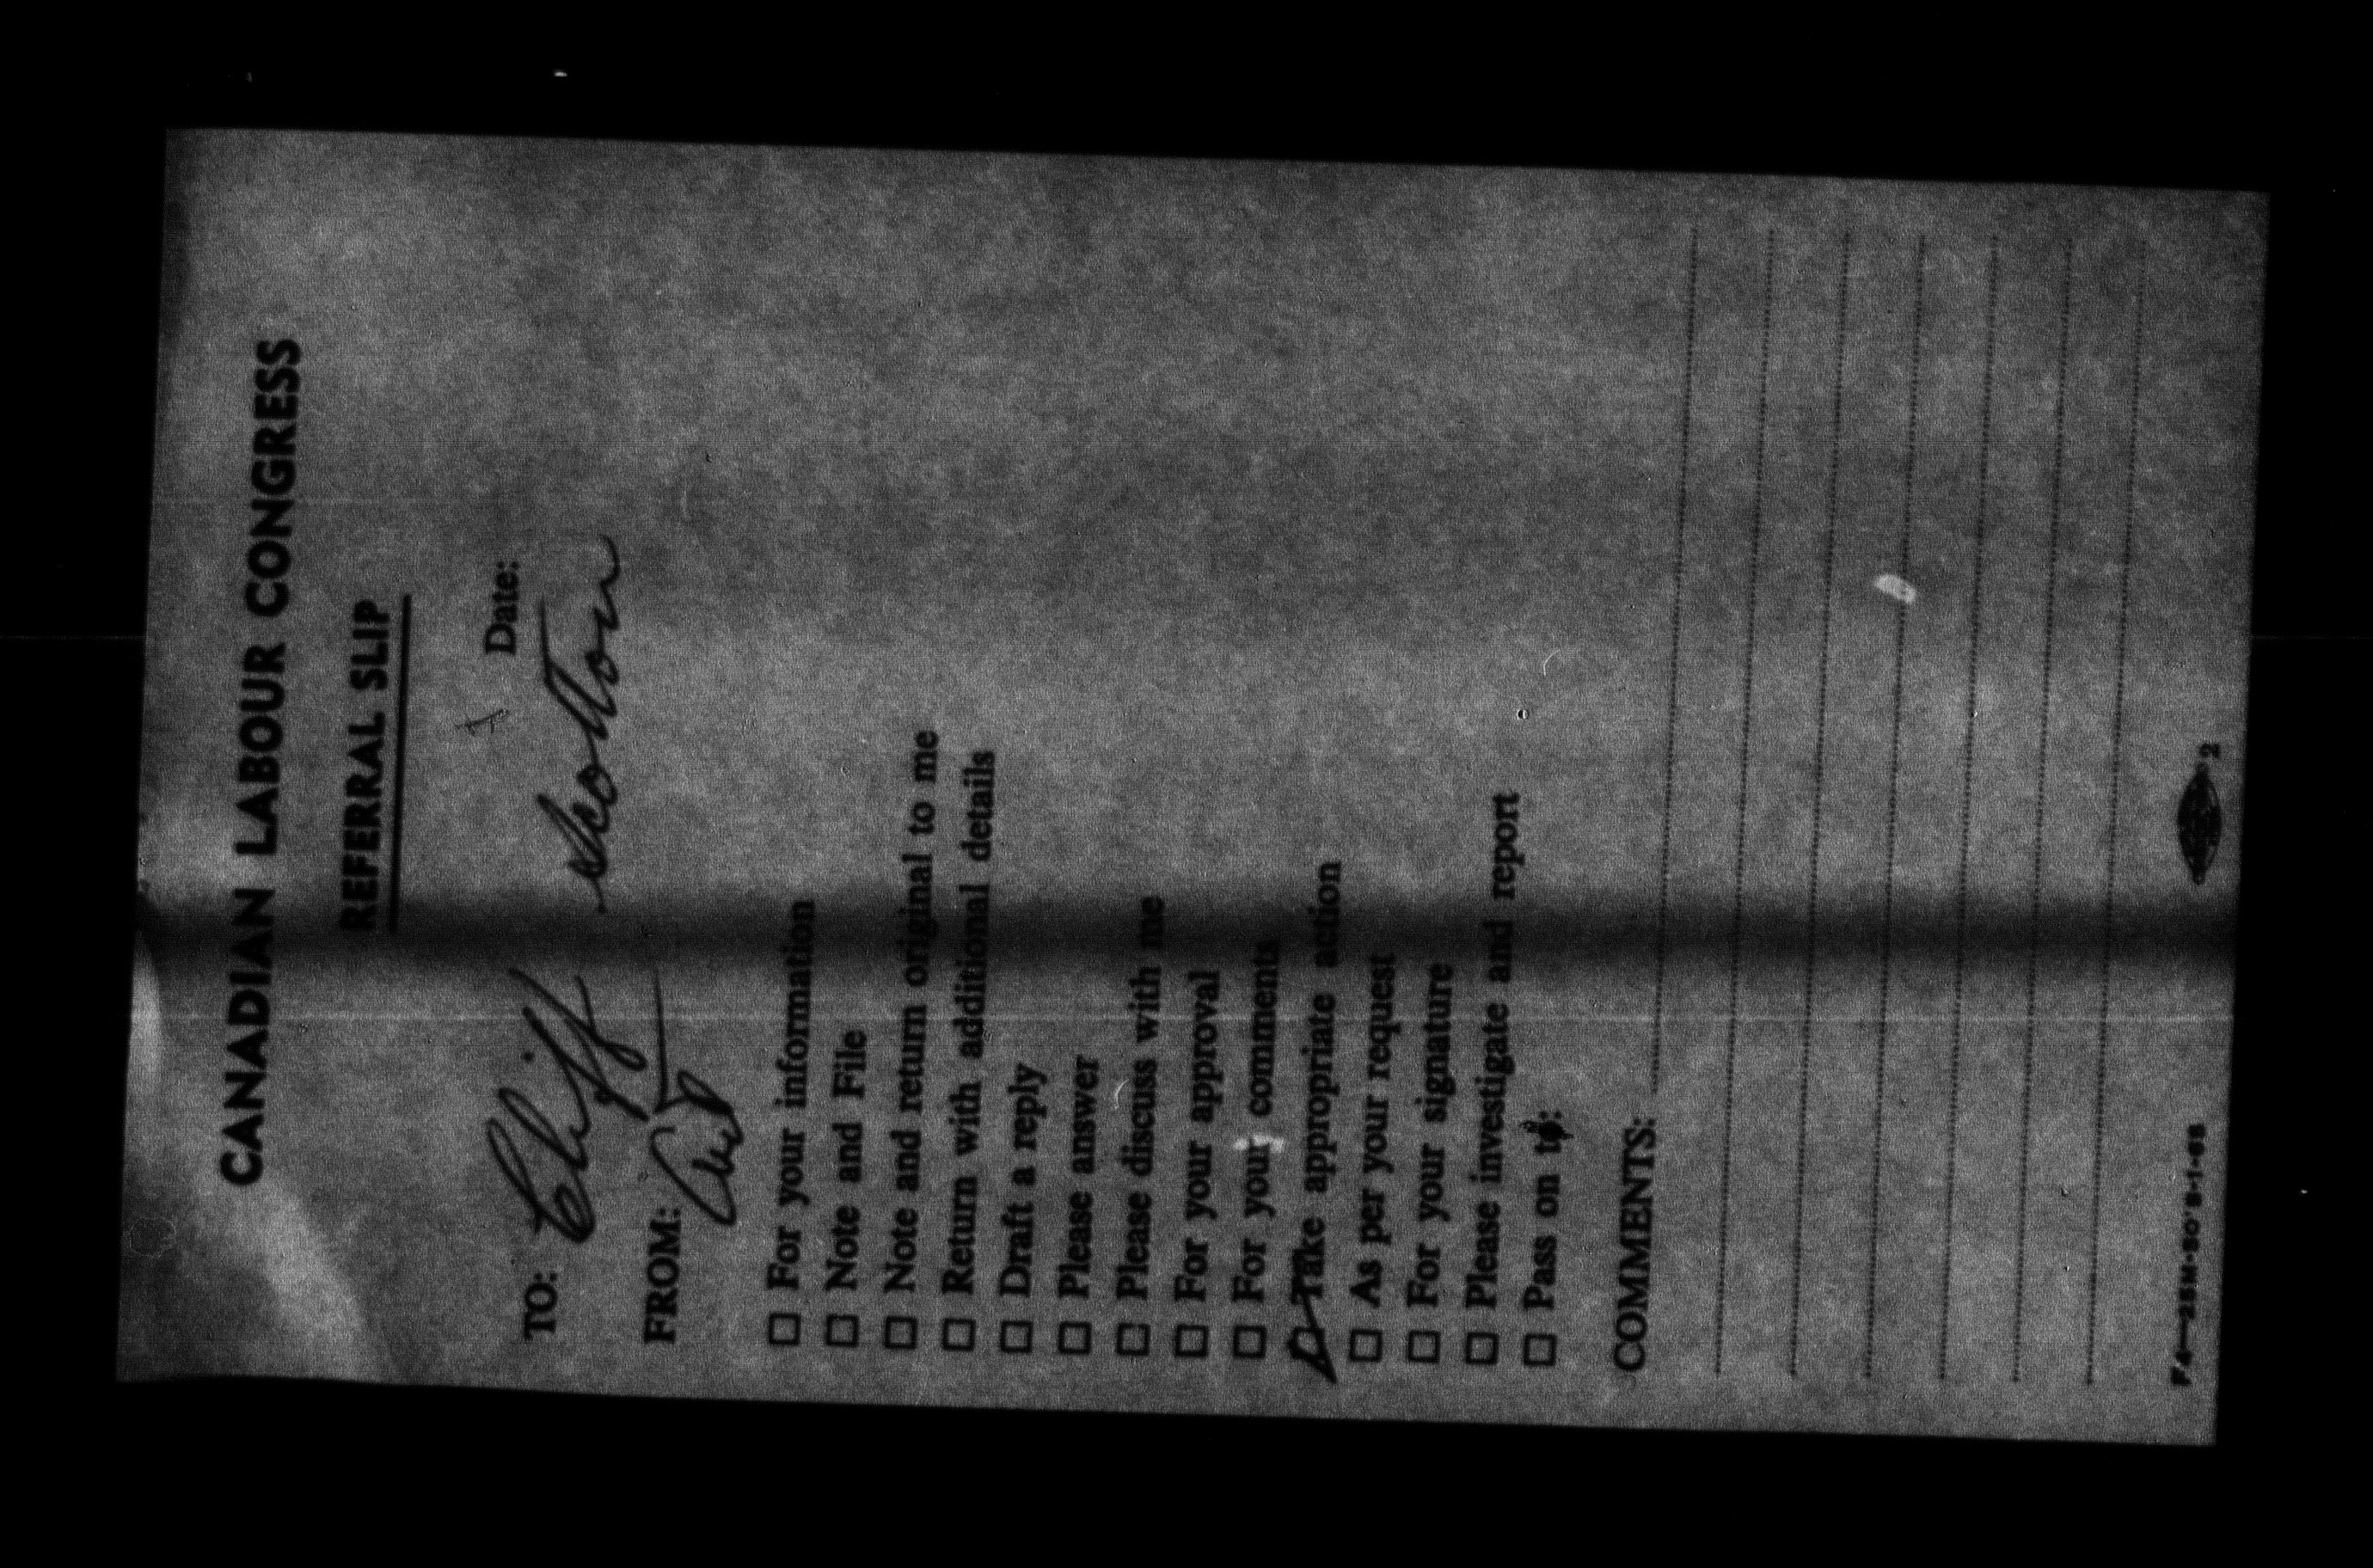 CANADIAN LABOUR CONGRESS
REFERRAL SLIP
Date:
TO: Cliff Scotton
FROM:
☐ For your information
☐ Note and File
☐ Note and return original to me
☐ Return with additional details
☐ Draft a reply
☐ Please answer
☐ Please discuss with me
☐ For your approval
☐ For your comments
☑ Take appropriate action
☐ As per your request
☐ For your signature
☐ Please investigate and report
☐ Pass on to:
COMMENTS:
2